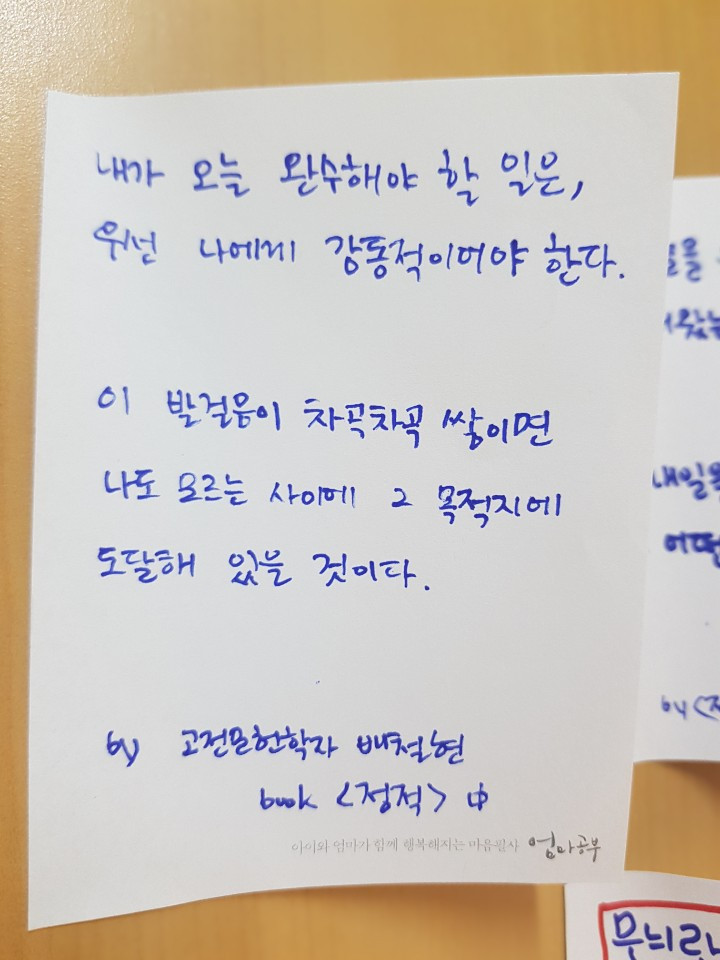 내가 오늘 완수해야 할 일은,
우선 나에게 감동적이어야 한다.
이 발걸음이 차곡차곡 쌓이면
나도 모르는 사이에 그 목적지에
도달해 있을 것이다.
by 고전문헌학자 배철현
book <정적> 中
아이와 엄마가 함께 행복해지는 마음필사 엄마공부
내일을
어떤
by <정
무늬란